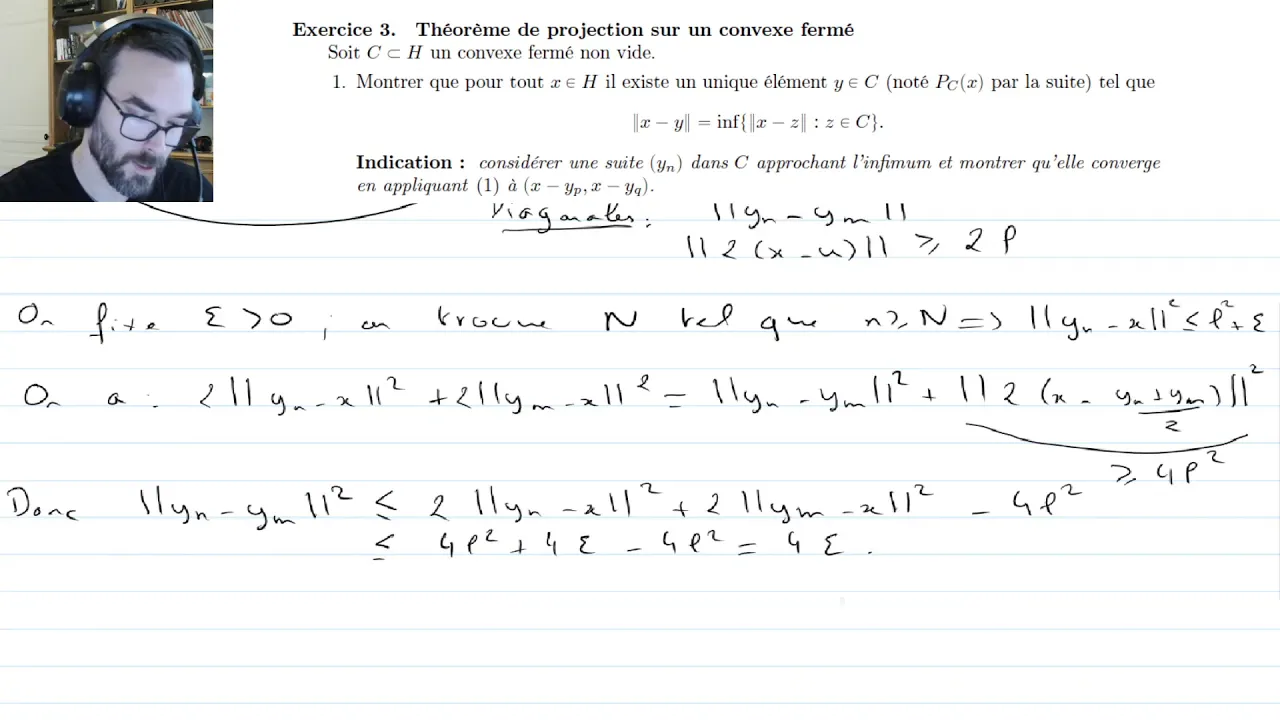 Exercice 3. Théorème de projection sur un convexe fermé
Soit C ⊂ H un convexe fermé non vide.
1. Montrer que pour tout x ∈ H il existe un unique élément y ∈ C (noté P_C(x) par la suite) tel que
‖x − y‖ = inf{‖x − z‖ : z ∈ C}.
Indication : considérer une suite (y_n) dans C approchant l'infimum et montrer qu'elle converge
en appliquant (1) à (x − y_p, x − y_q).
Diagonales : ||y_n − y_m||
||2(x − u)|| ≥ 2ℓ
On fixe ε > 0 ; on trouve N tel que n ≥ N => ||y_n − x||² ≤ ℓ² + ε
On a : 2||y_n − x||² + 2||y_m − x||² = ||y_n − y_m||² + ||2(x − (y_n + y_m)/2)||²
≥ 4ℓ²
Donc ||y_n − y_m||² ≤ 2||y_n − x||² + 2||y_m − x||² − 4ℓ²
≤ 4ℓ² + 4ε − 4ℓ² = 4ε.